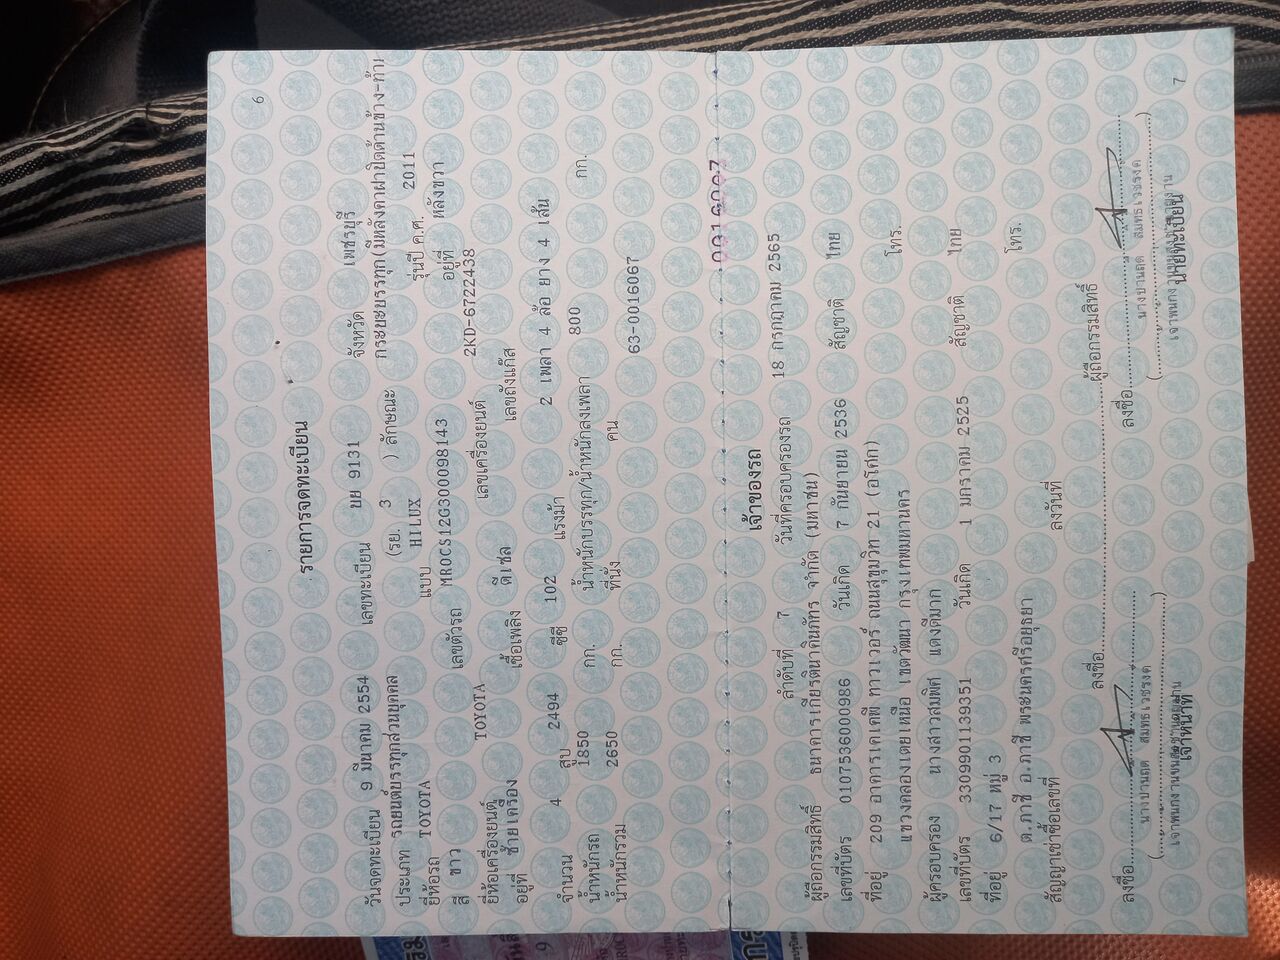 6
รายการจดทะเบียน
วันจดทะเบียน 9 มีนาคม 2554 เลขทะเบียน บย 9131 จังหวัด เพชรบุรี
ประเภท รถยนต์บรรทุกส่วนบุคคล (รย. 3 ) ลักษณะ กระบะบรรทุก(มีหลังคาฝาปิดด้านข้าง-ท้าย
ยี่ห้อรถ TOYOTA แบบ HILUX รุ่นปี ค.ศ. 2011
สี ขาว เลขตัวรถ MROCS12G300098143 อยู่ที่ หลังขวา
ยี่ห้อเครื่องยนต์ TOYOTA เลขเครื่องยนต์ 2KD-6722438
อยู่ที่ ซ้ายเครื่อง เชื้อเพลิง ดีเซล เลขถังแก๊ส
จำนวน 4 สูบ 2494 ซีซี 102 แรงม้า 2 เพลา 4 ล้อ ยาง 4 เส้น
น้ำหนักรถ 1850 กก. น้ำหนักบรรทุก/น้ำหนักลงเพลา 800 กก.
น้ำหนักรวม 2650 กก. ที่นั่ง คน 63-0016067
เจ้าของรถ
ลำดับที่ 7 วันที่ครอบครองรถ 18 กรกฎาคม 2565
ผู้ถือกรรมสิทธิ์ ธนาคารเกียรตินาคินภัทร จำกัด (มหาชน)
เลขที่บัตร 0107536000986 วันเกิด 7 กันยายน 2536 สัญชาติ ไทย
ที่อยู่ 209 อาคารเคเคพี ทาวเวอร์ ถนนสุขุมวิท 21 (อโศก) โทร.
แขวงคลองเตยเหนือ เขตวัฒนา กรุงเทพมหานคร
ผู้ครอบครอง นางสาวสมพิศ แดงดีมาก
เลขที่บัตร 3309901139351 วันเกิด 1 มกราคม 2525 สัญชาติ ไทย
ที่อยู่ 6/17 หมู่ 3 โทร.
ต.ภาชี อ.ภาชี พระนครศรีอยุธยา
สัญญาเช่าซื้อเลขที่ ลงวันที่
ลงชื่อ ผู้ถือกรรมสิทธิ์
ลงชื่อ ลงชื่อ
เจ้าหน้าที่ นายทะเบียน
7